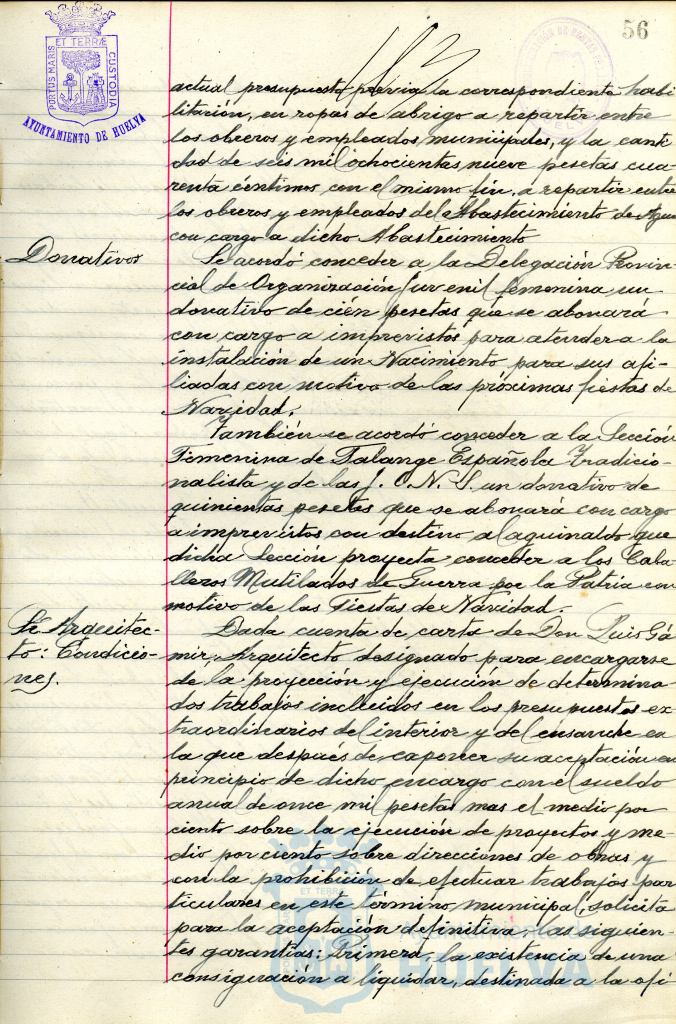 56
ET TERRÆ
PORTUS MARIS
CUSTODIA
AYUNTAMIENTO DE HUELVA
actual presupuesto previa la correspondiente habi-
litación, en ropas de abrigo a repartir entre
los obreros y empleados municipales, y la canti
dad de seis mil ochocientas nueve pesetas cua-
renta céntimos con el mismo fin, a repartir entre
los obreros y empleados del Abastecimiento de Agua
con cargo a dicho Abastecimiento
Donativos
Se acordó conceder a la Delegación Provin-
cial de Organización Juvenil femenina un
donativo de cién pesetas que se abonará
con cargo a imprevistos para atender a la
instalación de un Nacimiento para sus afi-
liadas con motivo de las próximas fiestas de
Navidad.
También se acordó conceder a la Sección
Femenina de Falange Española Tradicio-
nalista y de las J.O.N.S. un donativo de
quinientas pesetas que se abonará con cargo
a imprevistos con destino al aguinaldo que
dicha Sección proyecta conceder a los Caba-
lleros Mutilados de Guerra por la Patria con
motivo de las Fiestas de Navidad.
Arquitec-
to: Condicio-
nes.
Dada cuenta de carta de Don Luis Gá-
mir, Arquitecto designado para encargarse
de la proyección y ejecución de determina-
dos trabajos incluidos en los presupuestos ex-
traordinarios del interior y del ensanche en
la que después de exponer su aceptación en
principio de dicho encargo con el sueldo
anual de once mil pesetas mas el medio por
ciento sobre la ejecución de proyectos y me-
dio por ciento sobre direcciones de obras y
con la prohibición de efectuar trabajos par
ticulares en este término municipal, solicita
para la aceptación definitiva, las siguien-
tes garantías: Primera, la existencia de una
consignación a liquidar, destinada a la ofi
ET TERRÆ
HUELVA